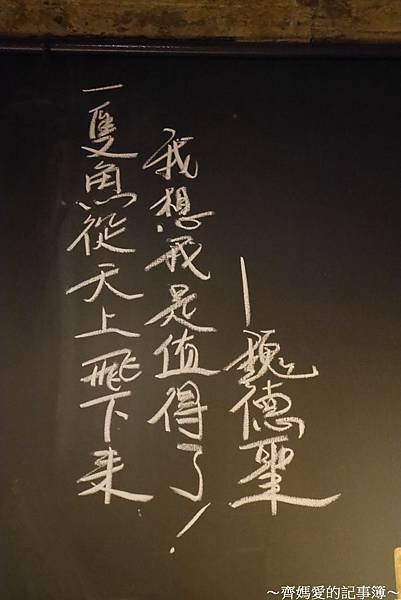 一隻魚從天上飛下来
我想我是值得了!
—魏德聖
～齊媽愛的記事簿～